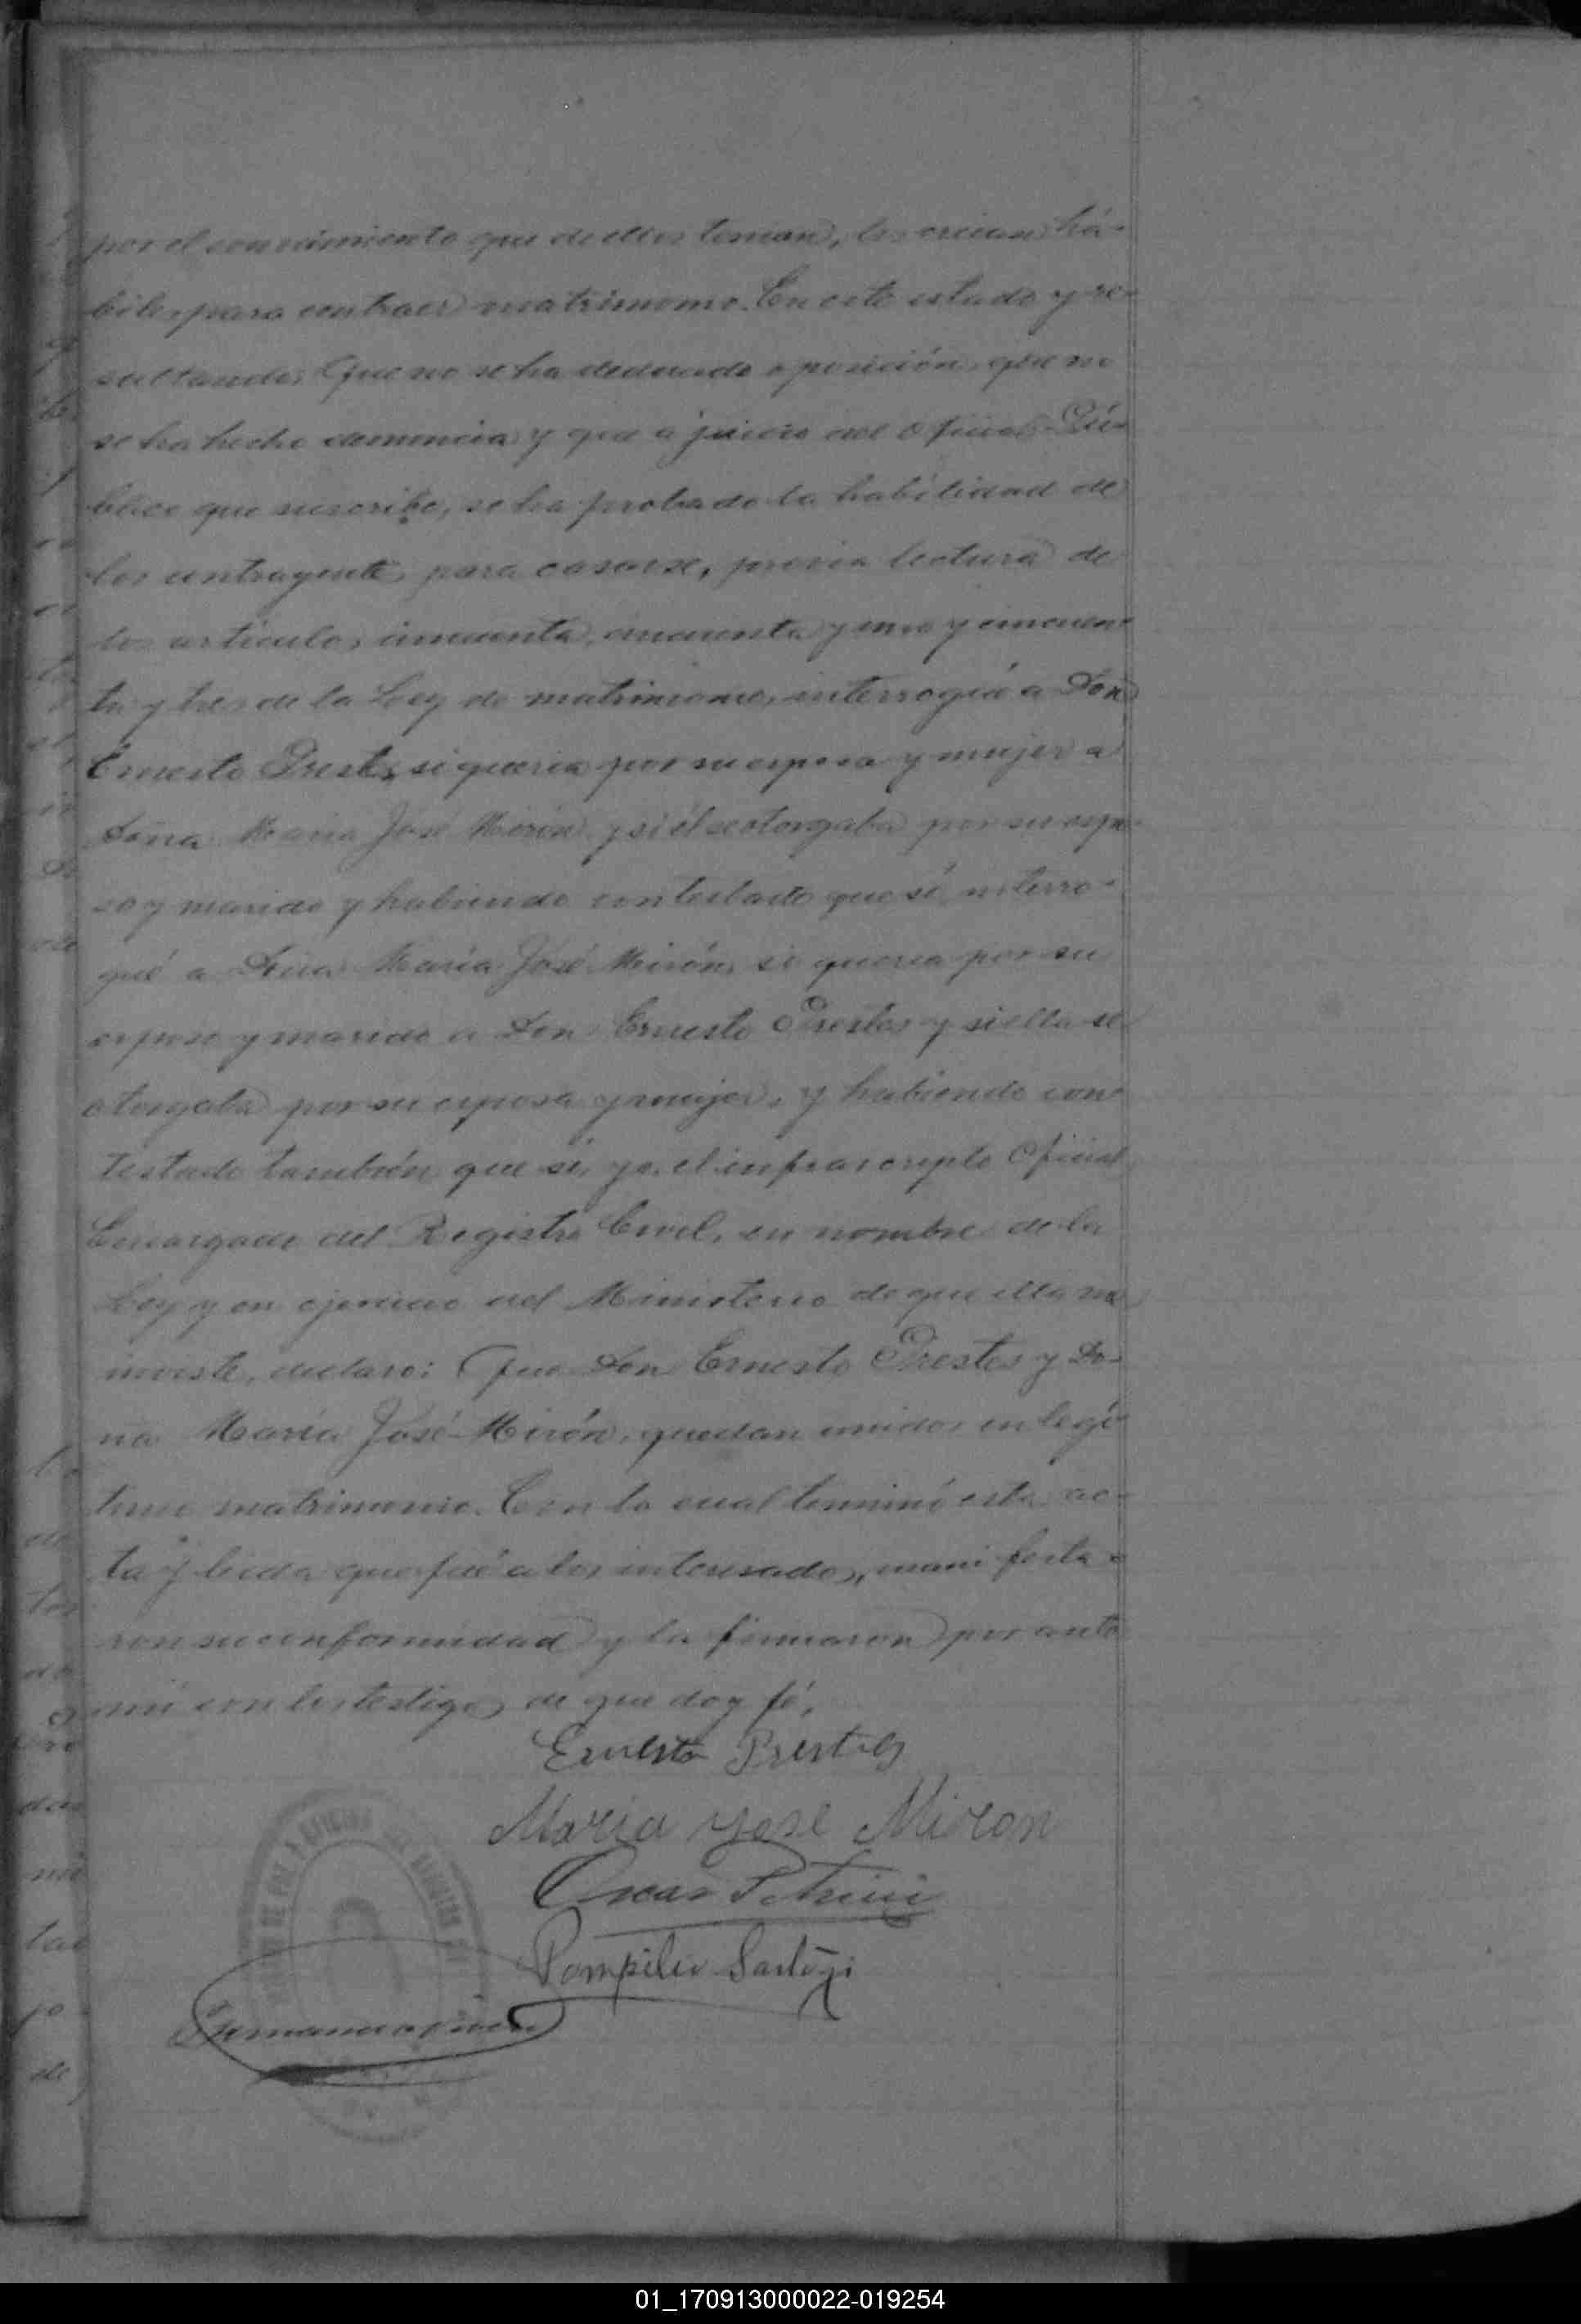 por el conocimiento que de ellos tenian, los creian há-
biles para contraer matrimonio. En este estado y re-
sultando: Que no se ha deducido oposición, que no
se ha hecho denuncia y que a juicio del Oficial Pú-
blico que suscribe, se ha probado la habilidad de
los contrayentes para casarse, previa lectura de
los artículos cincuenta, cincuenta y uno y cincuen-
ta y tres de la Ley de matrimonio, interrogué a Don
Ernesto Prestes, si queria por su esposa y mujer a
Doña María José Mirón y si él se otorgaba por su espo-
so y marido y habiendo contestado que sí, interro-
gué a Doña María José Mirón, si queria por su
esposo y marido a Don Ernesto Prestes y si ella se
otorgaba por su esposa y mujer, y habiendo con-
testado también que sí, yo, el infrascripto Oficial
Encargado del Registro Civil, en nombre de la
Ley y en ejercicio del Ministerio de que ella me
inviste, declaro: Que Don Ernesto Prestes y Do-
ña María José Mirón, quedan unidos en legí-
timo matrimonio. Con lo cual terminó esta ac-
ta y leida que fué a los interesados, manifesta-
ron su conformidad y la firmaron por ante
mí con los testigos de que doy fé.
Ernesto Prestes
Maria Jose Miron
Oscar Petrini
Pompilio Sartori